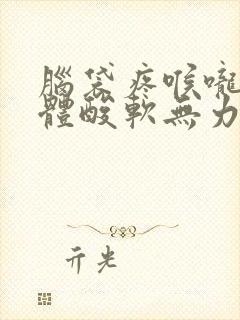 腦袋疼喉嚨
體酸軟無力
亓光